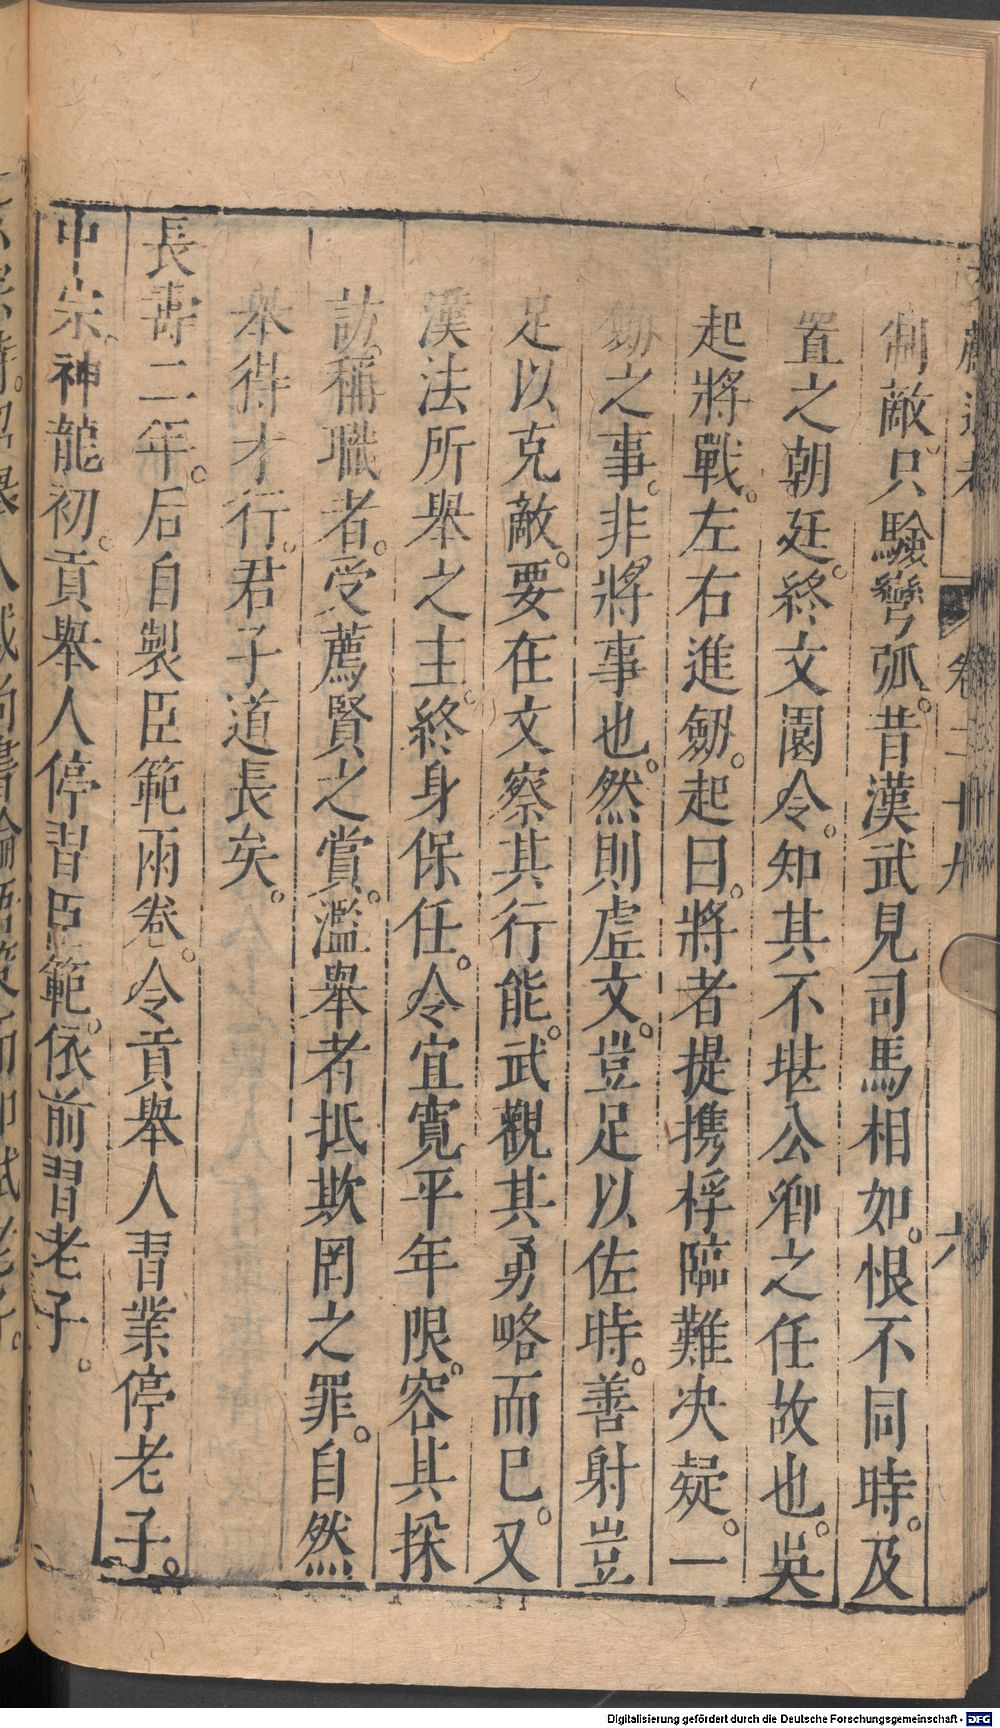 文獻通考 卷二十九 六
制敵只驗彎弧昔漢武見司馬相如恨不同時及
置之朝廷終文園令知其不堪公卿之任故也吳
起將戰左右進劒起曰將者提携桴臨難决疑一
劒之事非將事也然則虛文豈足以佐時善射豈
足以克敵要在文察其行能武觀其勇略而已又
漢法所舉之主終身保任令宜寬平年限容其採
訪稱職者受薦賢之賞濫舉者抵欺罔之罪自然
舉得才行君子道長矣
長壽二年后自製臣範兩卷令貢舉人習業停老子
中宗神龍初貢舉人停習臣範依前習老子
Digitalisierung gefördert durch die Deutsche Forschungsgemeinschaft - DFG